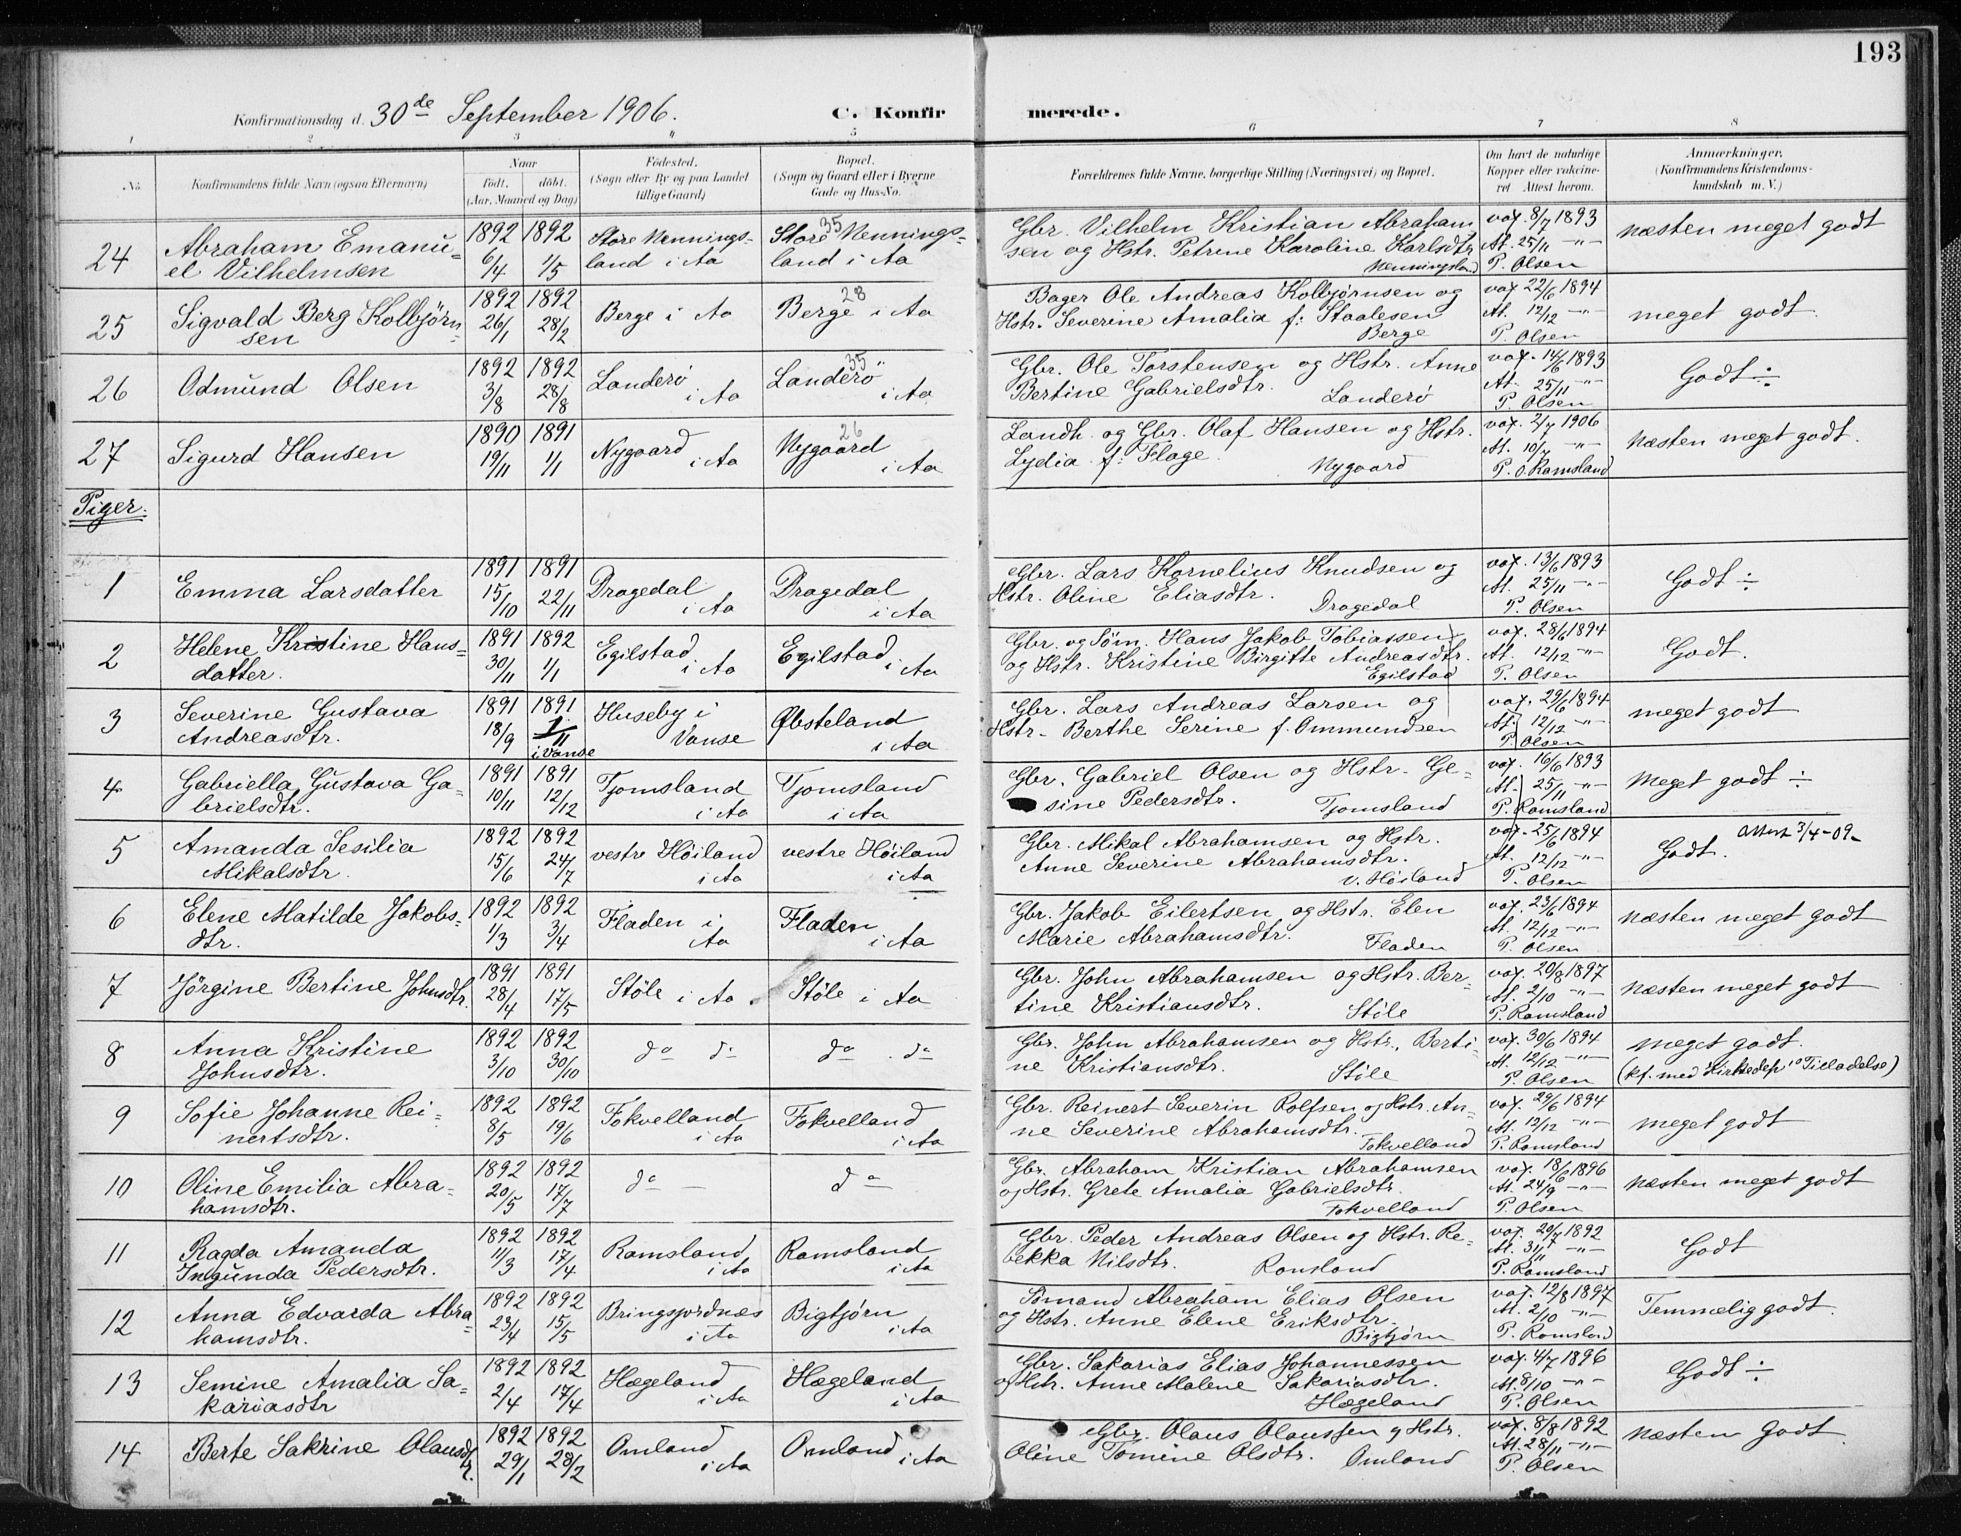 193
Konfirmationsdag d. 30de September 1906.
C. Konfirmerede.
1 2 3 4 5 6 7 8
No. Konfirmandens fulde Navn (ogsaa Efternavn) Naar født. døbt. (Aar, Maaned og Dag) Fødested. (Sogn eller By og paa Landet tillige Gaard) Bopæl. (Sogn og Gaard eller i Byerne Gade og Hus-No. Forældrenes fulde Navne, borgerlige Stilling (Næringsvei) og Bopæl. Om havt de naturlige Kopper eller vaccineret. Attest herom. Anmærkninger. (Konfirmandens Kristendomskundskab m. V.)
24 Abraham Emanu- 1892 1892 Store Mennings- Store 35 Mennings- Gbr. Vilhelm Kristian Abraham vax. 8/7 1893 næsten meget godt
el Vilhelmsen 6/4 1/5 land i Aa land i Aa sen og Hstr. Petrine Karoline Karlsdtr At. 25/11 -"-
Menningsland P. Olsen
25 Sigvald Berg Kolbjørn 1892 1892 Berge i Aa Berge 28 i Aa Bager Ole Andreas Kolbjørnsen og vax. 22/6 1894 meget godt.
sen 26/1 28/2 Hstr. Severine Amalia f: Staalesen At. 12/12 -"-
Berge P. Olsen
26 Odmund Olsen 1892 1892 Landerø Landerø 35 Gbr. Ole Torstensen og Hstr. Anne vax. 14/6 1893 Godt ÷
3/8 28/8 i Aa i Aa Bertine Gabrielsdtr. Landerø At. 25/11 -"-
P. Olsen
27 Sigurd Hansen 1890 1891 Nygaard Nygaard 26 Landh. og Gbr. Olaf Hansen og Hstr. vax. 2/7 1906 næsten meget godt.
19/11 1/1 i Aa i Aa Lydia f: Flage. Nygaard At. 10/7 -"-
P. O. Ramsland
Piger.
1 Emma Larsdatter 1891 1891 Dragedal Dragedal Gbr. Lars Kornelius Knudsen og vax. 13/6 1893 Godt ÷
15/10 22/11 i Aa i Aa Hstr. Oline Eliasdtr. Dragedal At. 25/11 -"-
P. Olsen
2 Helene Kristine Hans- 1891 1892 Egilstad Egilstad Gbr. og Søm. Hans Jakob Tobiassen vax. 28/6 1894 Godt.
datter. 30/11 1/1 i Aa i Aa og Hstr. Kristine Birgitte Andreasdtr. At. 12/12 -"-
Egilstad P. Olsen
3 Severine Gustava 1891 1891 Huseby i Øbsteland Gbr. Lars Andreas Larsen og vax. 29/6 1894 meget godt
Andreasdtr. 18/9 1/11 Vanse i Aa Hstr. Berthe Serine f. Ommundsen At. 12/12 -"-
i Vanse P. Olsen
4 Gabriella Gustava Ga- 1891 1891 Tjomsland Tjomsland Gbr. Gabriel Olsen og Hstr. Ge- vax. 16/6 1893 meget godt ÷
brielsdtr. 10/11 12/12 i Aa i Aa sine Pedersdtr. Tjomsland At. 25/11 -"-
P. Ramsland
5 Amanda Sesilia 1892 1892 vestre Høiland vestre Høiland Gbr. Mikal Abrahamsen og Hstr. vax. 25/6 1894 Godt. Attest 3/4-09
Mikalsdtr. 15/6 24/7 i Aa i Aa Anne Severine Abrahamsdtr. At. 12/12 -"-
V. Høiland P. Olsen
6 Elene Matilde Jakobs- 1892 1892 Fladen i Fladen Gbr. Jakob Eilertsen og Hstr. Elen vax. 23/6 1894 næsten meget godt
dtr. 1/3 3/4 Aa i Aa Marie Abrahamsdtr. Fladen At. 12/12 -"-
P. Olsen
7 Jørgine Bertine Johnsdtr. 1891 1891 Støle i Aa. Støle i Aa Gbr. John Abrahamsen og Hstr. Ber- vax. 20/8 1897 næsten meget godt
28/4 17/5 tine Kristiansdtr. Støle At. 2/10 -"-
P. Ramsland
8 Anna Kristine 1892 1892 do do do do Gbr. John Abrahamsen og Hstr. Berti- vax. 30/6 1894 meget godt.
Johnsdtr. 3/10 30/10 ne Kristiansdtr. Støle At. 12/12 -"- (kf. med Kirkedep Tilladelse)
P. Olsen
9 Sofie Johanne Rei- 1892 1892 Fokvelland Fokvelland Gbr. Reinert Severin Rolfsen og Hstr. An- vax. 29/6 1894 meget godt
nertsdtr. 8/5 19/6 i Aa i Aa ne Severine Abrahamsdtr. At. 12/12 -"-
Fokvelland P. Ramsland
10 Oline Emilia Abra- 1892 1892 do do Gbr. Abraham Kristian Abrahamsen vax. 18/6 1896 næsten meget godt
hamsdtr. 20/5 17/7 og Hstr. Grete Amalia Gabrielsdtr. At. 24/9 -"-
Fokvelland P. Olsen
11 Ragda Amanda 1892 1892 Ramsland Ramsland Gbr. Peder Andreas Olsen og Hstr. Re- vax. 20/7 1892 Godt
Ingunda Pedersdtr. 11/3 17/4 i Aa i Aa bekka Nilsdtr. Ramsland At. -"-
P. Ramsland
12 Anna Edvarda Abra 1892 1892 Bringsjordnæs Bigtjørn Sømand Abraham Elias Olsen vax. 12/8 1897 Temmelig godt.
hamsdtr. 23/4 15/5 i Aa i Aa og Hstr. Anne Elene Eriksdtr. At. 2/10 -"-
Bigtjørn P. Ramsland
13 Semine Amalia Sa- 1892 1892 Hægeland Hægeland Gbr. Sakarias Elias Johannessen vax. 4/7 1896 Godt ÷
kariasdtr 2/4 17/4 i Aa i Aa og Hstr. Anne Malene Sakariasdtr. At. 8/10 -"-
Hægeland P. Olsen
14 Berte Sakrine Olausdtr. 1892 1892 Omland Omland Gbr. Olaus Olaussen og Hstr. vax. 8/8 1892 næsten Godt.
29/1 28/2 i Aa i Aa Oline Tomine Olsdtr. Omland At. 28/11 -"-
P. Olsen